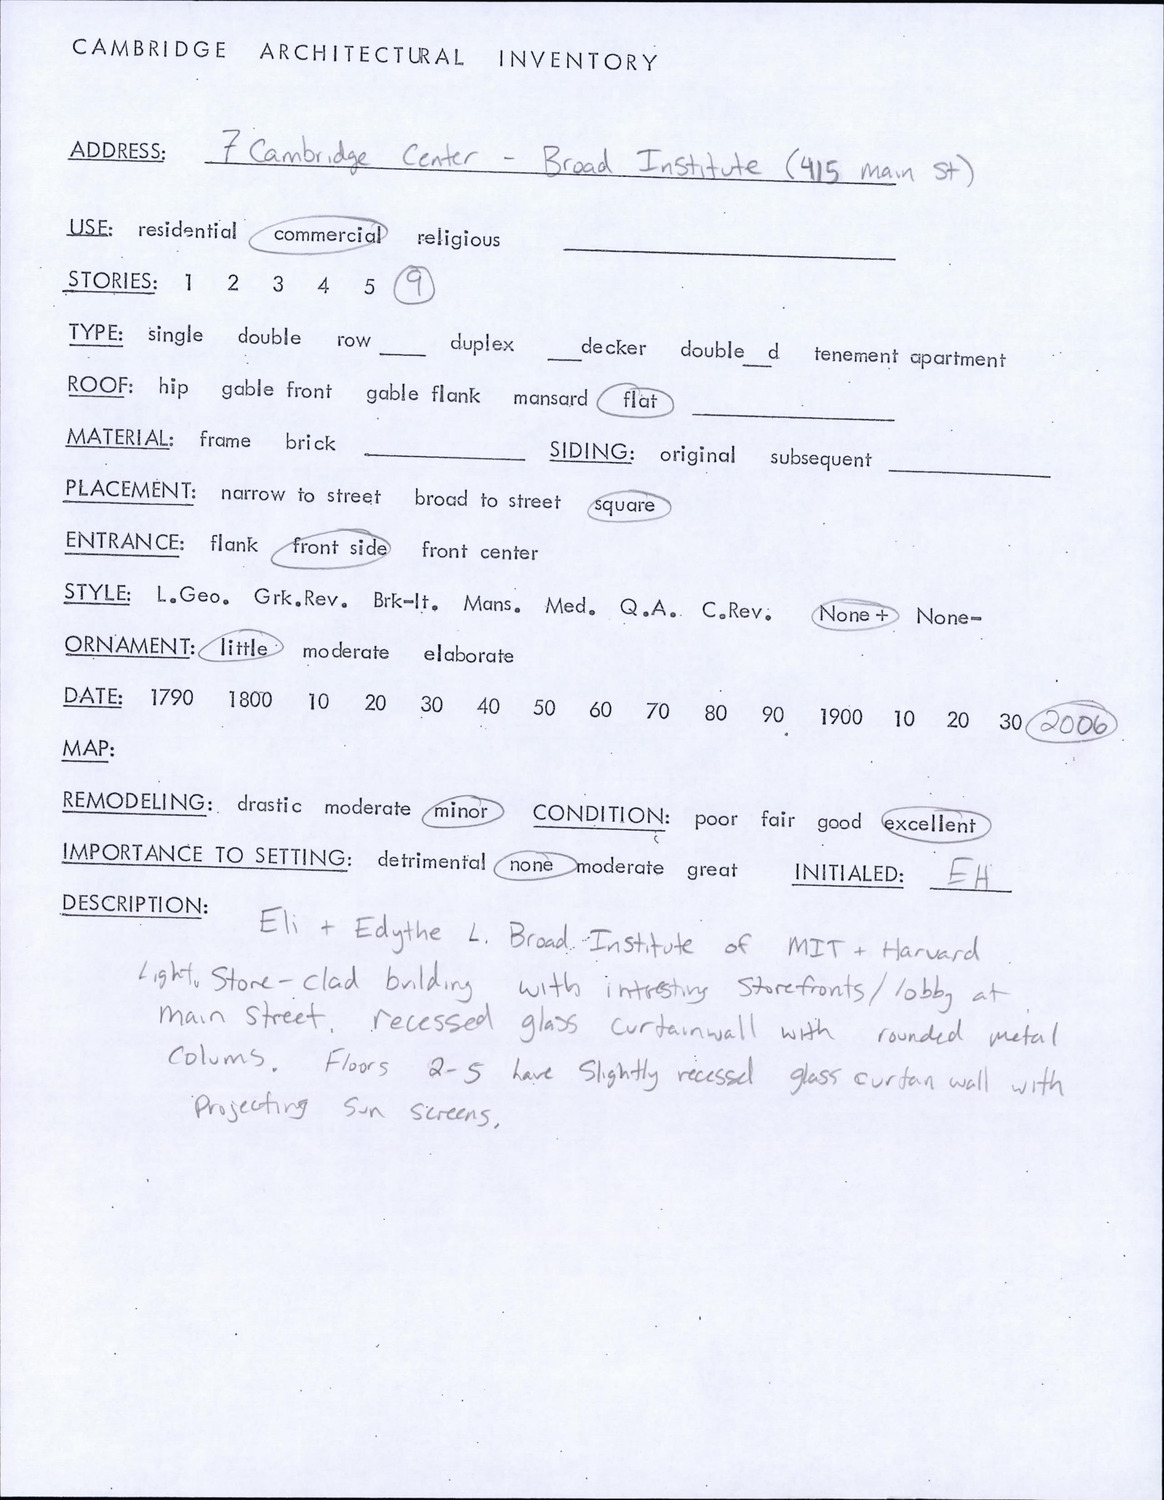 CAMBRIDGE ARCHITECTURAL INVENTORY
ADDRESS: 7 Cambridge Center - Broad Institute (415 Main St)
USE: residential commercial religious
STORIES: 1 2 3 4 5 9
TYPE: single double row ___ duplex ___decker double__d tenement apartment
ROOF: hip gable front gable flank mansard flat
MATERIAL: frame brick SIDING: original subsequent
PLACEMENT: narrow to street broad to street square
ENTRANCE: flank front side front center
STYLE: L.Geo. Grk.Rev. Brk-It. Mans. Med. Q.A. C.Rev. None+ None-
ORNAMENT: little moderate elaborate
DATE: 1790 1800 10 20 30 40 50 60 70 80 90 1900 10 20 30 2006
MAP:
REMODELING: drastic moderate minor CONDITION: poor fair good excellent
IMPORTANCE TO SETTING: detrimental none moderate great INITIALED: EH
DESCRIPTION:
Eli + Edythe L. Broad Institute of MIT + Harvard
Light, Stone-clad building with intresting Storefronts/lobby at
Main Street. recessed glass curtainwall with rounded metal
Colums. Floors 2-5 have Slightly recessed glass curtan wall with
Projecting Sun Screens.